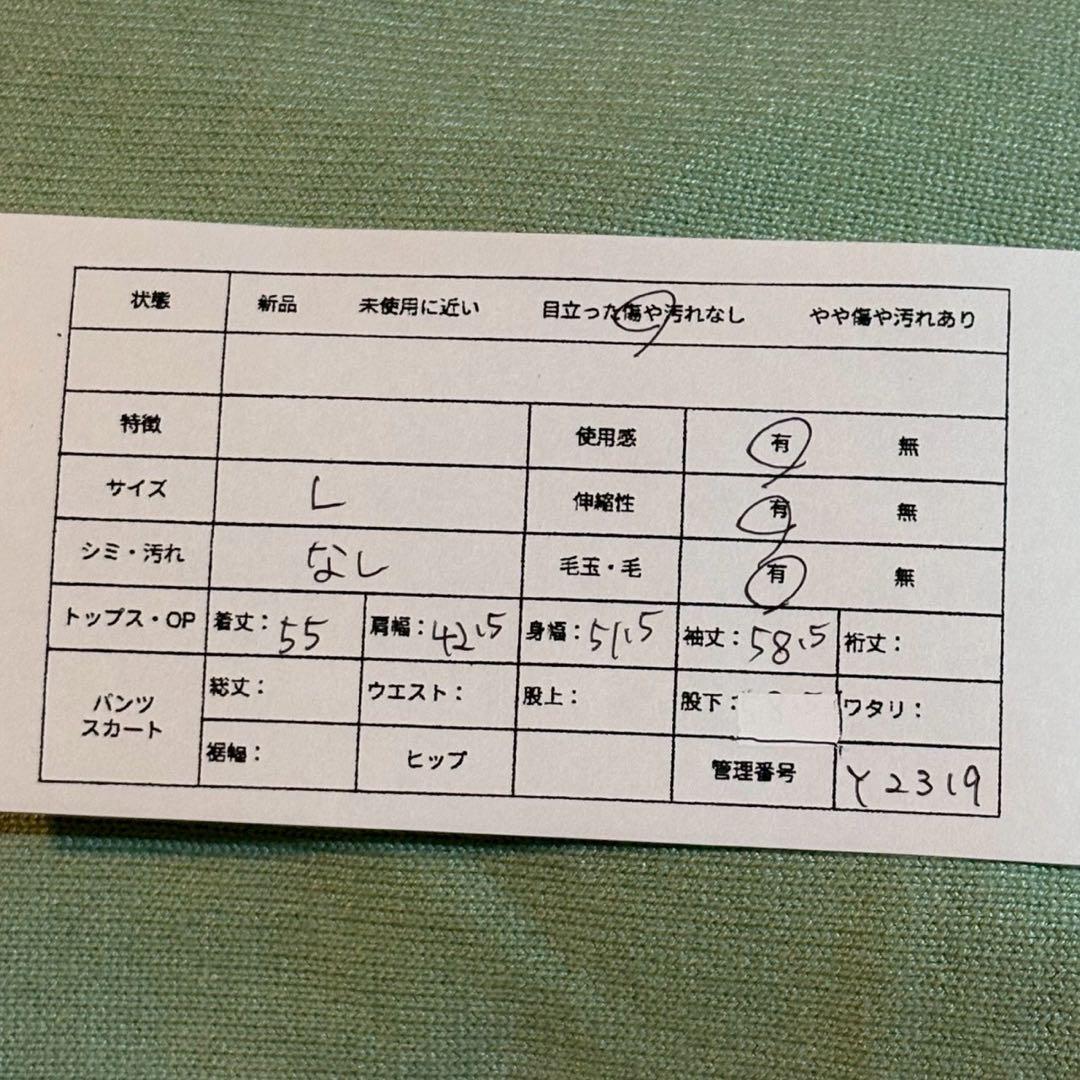 状態 新品 未使用に近い 目立った傷や汚れなし やや傷や汚れあり
特徴 使用感 有 無
サイズ L 伸縮性 有 無
シミ・汚れ なし 毛玉・毛 有 無
トップス・OP 着丈：55 肩幅：42.5 身幅：51.5 袖丈：58.5 裄丈：
パンツ
スカート
総丈： ウエスト： 股上： 股下： ワタリ：
裾幅： ヒップ 管理番号 Y2319